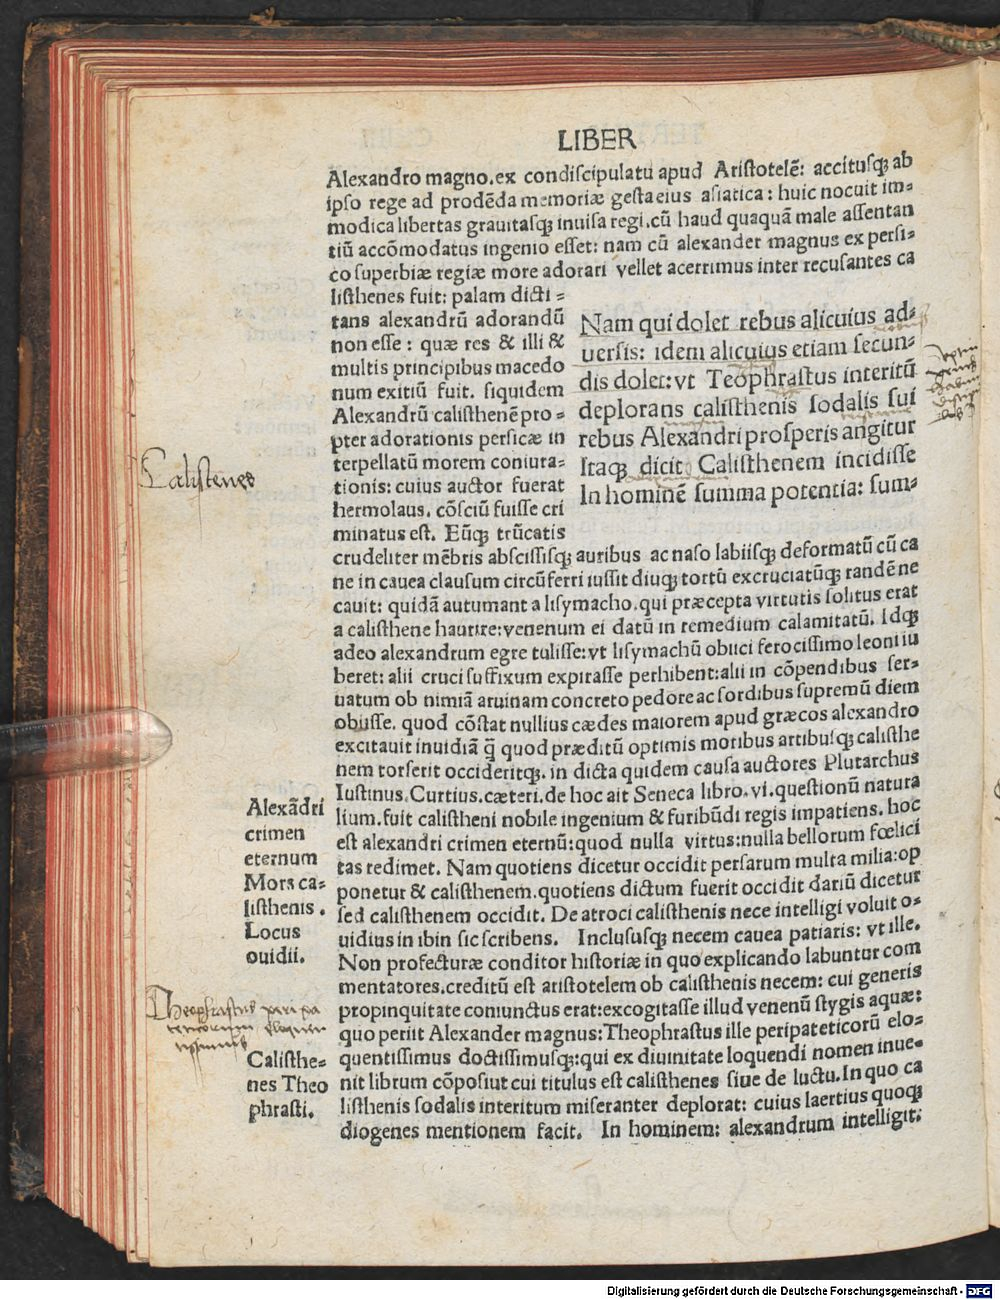 LIBER
Alexandro magno.ex condiscipulatu apud Aristotelē: accitusqꝫ ab
ipso rege ad prodēda memoriæ gesta eius asiatica: huic nocuit im=
modica libertas grauitasqꝫ inuisa regi.cū haud quaquā male assentan
tiū accōmodatus ingenio esset: nam cū alexander magnus ex persi=
co superbiæ regiæ more adorari vellet acerrimus inter recusantes ca
listhenes fuit: palam dicti=
tans alexandrū adorandū
non esse: quæ res & illi &
multis principibus macedo
num exitiū fuit. siquidem
Alexandrū calisthenē pro=
pter adorationis persicæ in
terpellatū morem coniura=
tionis: cuius auctor fuerat
hermolaus. cōsciū fuisse cri
minatus est. Eūqꝫ trūcatis
Nam qui dolet rebus alicuius ad=
uersis: idem alicuius etiam secun=
dis dolet:vt Teophrastus interitū
deplorans calisthenis sodalis sui
rebus Alexandri prosperis angitur
Itaqꝫ dicit Calisthenem incidisse
In hominē summa potentia: sum=
crudeliter mēbris abscissisqꝫ auribus ac naso labiisqꝫ deformatū cū ca
ne in cauea clausum circūferri iussit diuqꝫ tortū excruciatūqꝫ randē ne
cauit: quidā autumant a lisymacho.qui præcepta virtutis solitus erat
a calisthene haurire:venenum ei datū in remedium calamitatū. Idqꝫ
adeo alexandrum egre tulisse:vt lisymachū obiici ferocissimo leoni iu
beret: alii cruci suffixum expirasse perhibent:alii in cōpendibus ser=
uatum ob nimiā aruinam concreto pedore ac sordibus supremū diem
obiisse. quod cōstat nullius cædes maiorem apud græcos alexandro
excitauit inuidiā q̄ quod præditū optimis moribus artibusqꝫ calisthe
nem torserit occideritqꝫ. in dicta quidem causa auctores Plutarchus
Iustinus.Curtius.cæteri.de hoc ait Seneca libro.vi.questionū natura
lium.fuit calistheni nobile ingenium & furibūdi regis impatiens. hoc
est alexandri crimen eternū:quod nulla virtus:nulla bellorum fœlici
tas redimet. Nam quotiens dicetur occidit persarum multa milia:op
ponetur & calisthenem.quotiens dictum fuerit occidit dariū dicetur
sed calisthenem occidit. De atroci calisthenis nece intelligi voluit o=
uidius in ibin sic scribens. Inclususqꝫ necem cauea patiaris: vt ille.
Non profecturæ conditor historiæ in quo explicando labuntur com
mentatores.creditū est aristotelem ob calisthenis necem: cui generis
propinquitate coniunctus erat:excogitasse illud venenū stygis aquæ:
quo periit Alexander magnus:Theophrastus ille peripateticorū elo=
quentissimus doctissimusqꝫ:qui ex diuinitate loquendi nomen inue=
nit librum cōposiut cui titulus est calisthenes siue de luctu.In quo ca
listhenis sodalis interitum miseranter deplorat: cuius laertius quoqꝫ
diogenes mentionem facit. In hominem: alexandrum intelligit:
Calistenes
Alexādri
crimen
eternum
Mors ca=
listhenis.
Locus
ouidii.
Theophrastus peripa
teticorum eloquen
tissimus
Calisthe=
nes Theo
phrasti.
Digitalisierung gefördert durch die Deutsche Forschungsgemeinschaft - DFG